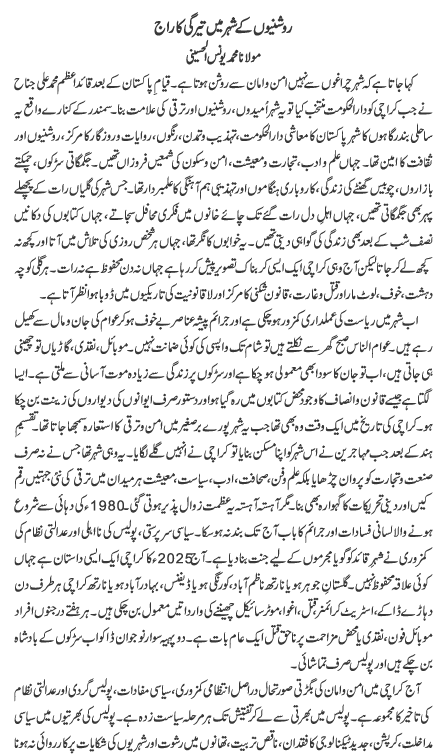 روشنیوں کے شہر میں تیرگی کا راج
مولانا محمد یونس الحسینی
کہا جاتا ہے کہ شہر چراغوں سے نہیں امن و امان سے روشن ہوتا ہے۔ قیامِ پاکستان کے بعد قائد اعظم محمد علی جناح
نے جب کراچی کو دارالحکومت منتخب کیا تو یہ شہر اُمیدوں، روشنیوں اور ترقی کی علامت بنا۔ سمندر کے کنارے واقع یہ
ساحلی بندرگاہوں کا شہر پاکستان کا معاشی دارالحکومت، تہذیب و تمدن، رنگوں، روایات و روزگار کا مرکز، روشنیوں اور
ثقافت کا امین تھا۔ جہاں علم و ادب، تجارت و معیشت، امن و سکون کی شمعیں فروزاں تھیں۔ جگمگاتی سڑکوں، چمکتے
بازاروں، چوبیس گھنٹے کی زندگی، کاروباری ہنگاموں اور تہذیبی ہم آہنگی کا علمبردار تھا۔ جس شہر کی گلیاں رات کے پچھلے
پہر بھی جگمگاتی تھیں، جہاں اہلِ دل رات گئے تک چائے خانوں میں فکری محافل سجاتے، جہاں کتابوں کی دکانیں
نصف شب کے بعد بھی زندگی کی گواہی دیتی تھیں۔ یہ خوابوں کا نگر تھا، جہاں ہر شخص روزی کی تلاش میں آتا اور کچھ نہ
کچھ لے کر جاتا لیکن آج وہی کراچی ایک ایسی کربناک تصویر پیش کر رہا ہے جہاں نہ دن محفوظ ہے نہ رات۔ ہر گلی کوچہ
دہشت، خوف، لوٹ مار اور قتل و غارت، قانون شکنی کا مرکز اور لاقانونیت کی تاریکیوں میں ڈوبا ہوا نظر آتا ہے۔
اب شہر میں ریاست کی عملداری کمزور ہو چکی ہے اور جرائم پیشہ عناصر بے خوف ہو کر عوام کی جان و مال سے کھیل
رہے ہیں۔ عوام الناس صبح گھر سے نکلتے ہیں تو شام تک واپسی کی کوئی ضمانت نہیں۔ موبائل، نقدی، گاڑیاں تو چھینی
ہی جاتی ہیں، اب تو جان کا سودا بھی معمولی ہو چکا ہے اور سڑکوں پر زندگی سے زیادہ موت آسانی سے ملتی ہے۔ ایسا
لگتا ہے جیسے قانون و انصاف کا وجود محض کتابوں میں رہ گیا ہو اور دستور صرف ایوانوں کی دیواروں کی زینت بن چکا
ہو۔ کراچی کی تاریخ میں ایک وقت وہ بھی تھا جب یہ شہر پورے برصغیر میں امن و ترقی کا استعارہ سمجھا جاتا تھا۔ تقسیمِ
ہند کے بعد جب مہاجرین نے اس شہر کو اپنا مسکن بنایا تو کراچی نے انہیں گلے لگایا۔ یہ وہی شہر تھا جس نے نہ صرف
صنعت و تجارت کو پروان چڑھایا بلکہ علم و فن، صحافت، ادب، سیاست، معیشت ہر میدان میں ترقی کی نئی جہتیں رقم
کیں اور دینی تحریکات کا گہوارہ بھی بنا۔ مگر آہستہ آہستہ یہ عظمت زوال پذیر ہوتی گئی۔ 1980ء کی دہائی سے شروع
ہونے والا لسانی فسادات اور جرائم کا باب آج تک بند نہ ہو سکا۔ سیاسی سرپرستی، پولیس کی نااہلی اور عدالتی نظام کی
کمزوری نے شہرِ قائد کو گویا مجرموں کے لیے جنت بنا دیا ہے۔ آج 2025ء کا کراچی ایک ایسی داستان ہے جہاں
کوئی علاقہ محفوظ نہیں۔ گلستانِ جوہر ہو یا نارتھ ناظم آباد، کورنگی ہو یا ڈیفنس، بہادر آباد ہو یا نارتھ کراچی ہر طرف دن
دہاڑے ڈاکے، اسٹریٹ کرائمز، قتل، اغوا، موٹر سائیکل چھیننے کی وارداتیں معمول بن چکی ہیں۔ ہر ہفتے درجنوں افراد
موبائل فون، نقدی یا محض مزاحمت پر ناحق قتل ایک عام بات ہے۔ دو پہیہ سوار نوجوان ڈاکو اب سڑکوں کے بادشاہ
بن چکے ہیں اور پولیس صرف تماشائی۔
آج کراچی میں امن و امان کی بگڑتی صورتحال دراصل انتظامی کمزوری، سیاسی مفادات، پولیس گردی اور عدالتی نظام
کی تاخیر کا مجموعہ ہے۔ پولیس میں بھرتی سے لے کر تفتیش تک ہر مرحلہ سیاست زدہ ہے۔ پولیس کی بھرتیوں میں سیاسی
مداخلت، کرپشن، جدید ٹیکنالوجی کا فقدان، ناقص تربیت، تھانوں میں رشوت اور شہریوں کی شکایات پر کارروائی نہ ہونا